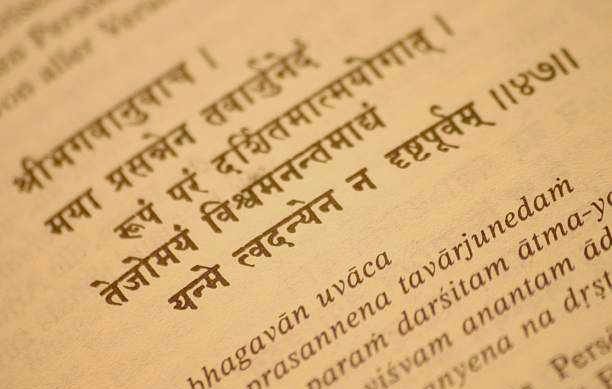 aller
श्रीभगवानुवाच ।
मया प्रसन्नेन तवार्जुनेदं
रूपं परं दर्शितमात्मयोगात् ।
तेजोमयं विश्वमनन्तमाद्यं
यन्मे त्वदन्येन न दृष्टपूर्वम् ॥४७॥
bhagavān uvāca
prasannena tavārjunedaṁ
paraṁ darśitam ātma-yo
viśvam anantam ād
nyena na dṛṣṭ
Pers